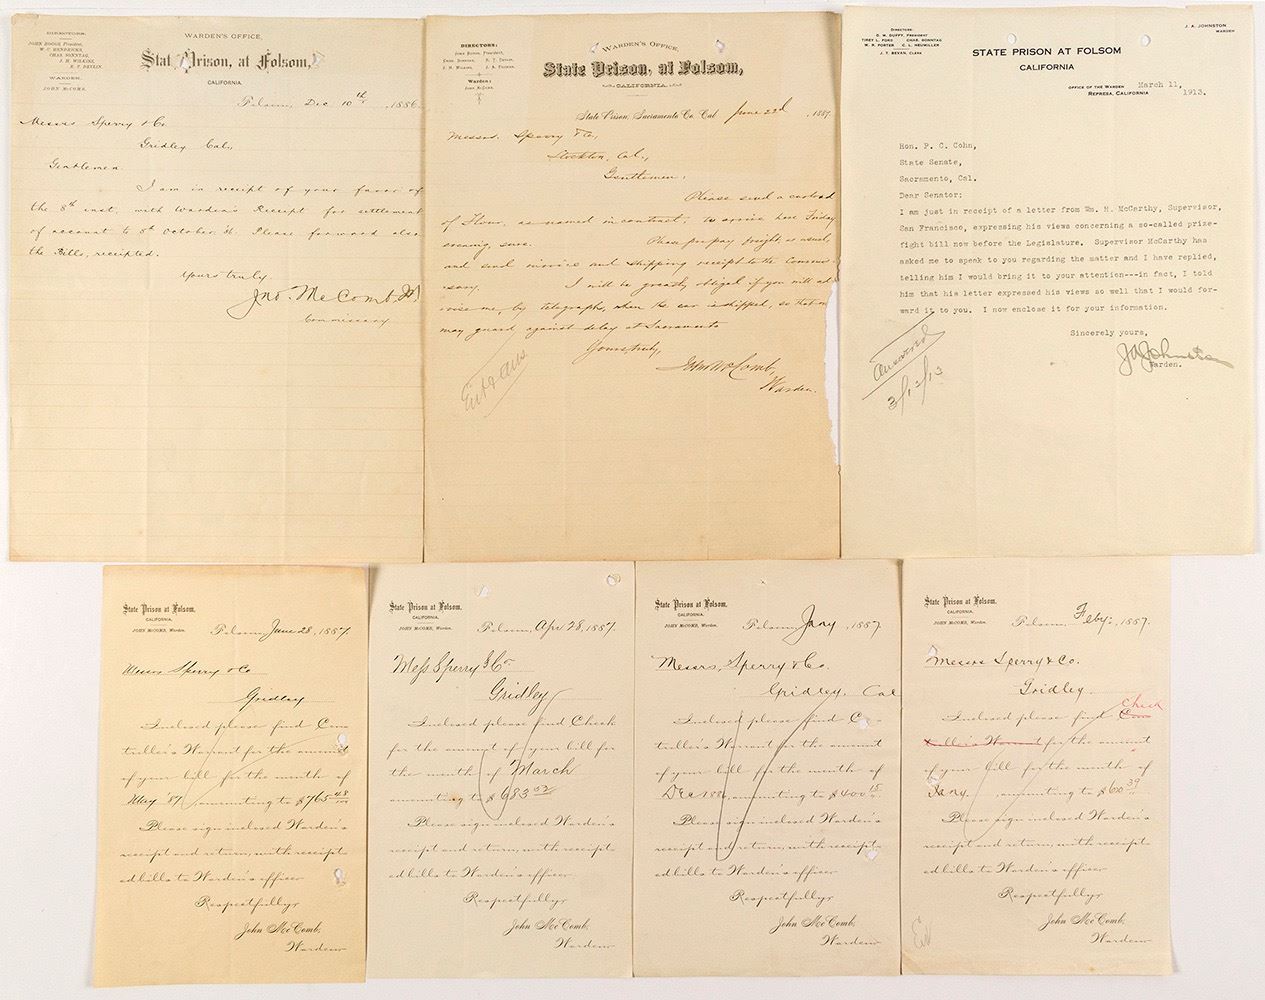 DIRECTORS:
JOHN BOGGS, President,
W. C. HENDRICKS,
CHAS. SONNTAG,
J. H. WILKINS,
R. T. DEVLIN.
WARDEN.
JOHN McCOMB.
WARDEN'S OFFICE,
Stat Prison, at Folsom,
CALIFORNIA.
Folsom, Dec 10th, 1886
Messrs Sperry & Co.
Gridley Cal.,
Gentlemen
I am in receipt of your favor of
the 8th inst. with Warden's Receipt for settlement
of account to 8th October 31. Please forward also
the Bills, receipted.
Yours truly
Jno. McComb Jr
Commissary
DIRECTORS:
John Boggs, President,
Chas. Sonntag, R. T. Devlin,
J. H. Wilkins,
Warden:
John McComb.
WARDEN'S OFFICE,
State Prison, at Folsom,
CALIFORNIA.
State Prison, Sacramento Co. Cal June 22d, 1887.
Messrs. Sperry & Co.,
Stockton, Cal.,
Gentlemen:
Please send a carload
of Flour, as named in contract, to arrive here Friday
evening, sure. Please pre-pay freight, as usual,
and send invoice and shipping receipt to the Commis-
sary. I will be greatly obliged if you will ad-
vise me, by telegraph, when the car is shipped, so that we
may guard against delay at Sacramento
Yours truly,
John McComb,
Warden.
DIRECTORS:
D. M. DUFFY, PRESIDENT
TIREY L. FORD CHAS. SONNTAG
W. R. PORTER C. L. NEUMILLER
J. T. BEVAN, CLERK
J. A. JOHNSTON
WARDEN
STATE PRISON AT FOLSOM
CALIFORNIA
OFFICE OF THE WARDEN
REPRESA, CALIFORNIA
March 11,
1913.
Hon. P. C. Cohn,
State Senate,
Sacramento, Cal.
Dear Senator:
I am just in receipt of a letter from Wm. H. McCarthy, Supervisor,
San Francisco, expressing his views concerning a so-called prize-
fight bill now before the Legislature. Supervisor McCarthy has
asked me to speak to you regarding the matter and I have replied,
telling him I would bring it to your attention---in fact, I told
him that his letter expressed his views so well that I would for-
ward it to you. I now enclose it for your information.
Sincerely yours,
J A Johnston
Warden.
Answered
3/12/13
State Prison at Folsom,
CALIFORNIA.
JOHN McCOMB, Warden.
Folsom, June 28, 1887.
Messrs Sperry & Co
Gridley
Inclosed please find Con
troller's Warrant for the amount
of your bill for the month of
May '87, amounting to $765 48/100
Please sign inclosed Warden's
receipt and return, with receipt
ed bills to Warden's office
Respectfully,
John McComb,
Warden
State Prison at Folsom,
CALIFORNIA.
JOHN McCOMB, Warden.
Folsom, Apr 28, 1887.
Mess Sperry & Co
Gridley
Inclosed please find Check
for the amount of your bill for
the month of March
amounting to $683
Please sign inclosed Warden's
receipt and return, with receipt
ed bills to Warden's office
Respectfully,
John McComb,
Warden
State Prison at Folsom,
CALIFORNIA.
JOHN McCOMB, Warden.
Folsom, Jany, 1887
Messrs, Sperry & Co.
Gridley, Cal
Inclosed please find Con
troller's Warrant for the amount
of your bill for the month of
Dec 1886, amounting to $400 15
Please sign inclosed Warden's
receipt and return, with receipt
ed bills to Warden's office
Respectfully,
John McComb,
Warden
State Prison at Folsom,
CALIFORNIA.
JOHN McCOMB, Warden.
Folsom, Feby:, 1887.
Messrs Sperry & Co.
Gridley.
check
Inclosed please find Con
troller's Warrant for the amount
of your bill for the month of
Jany. amounting to $600 39
Please sign inclosed Warden's
receipt and return, with receipt
ed bills to Warden's office
Respectfully,
John McComb,
Warden